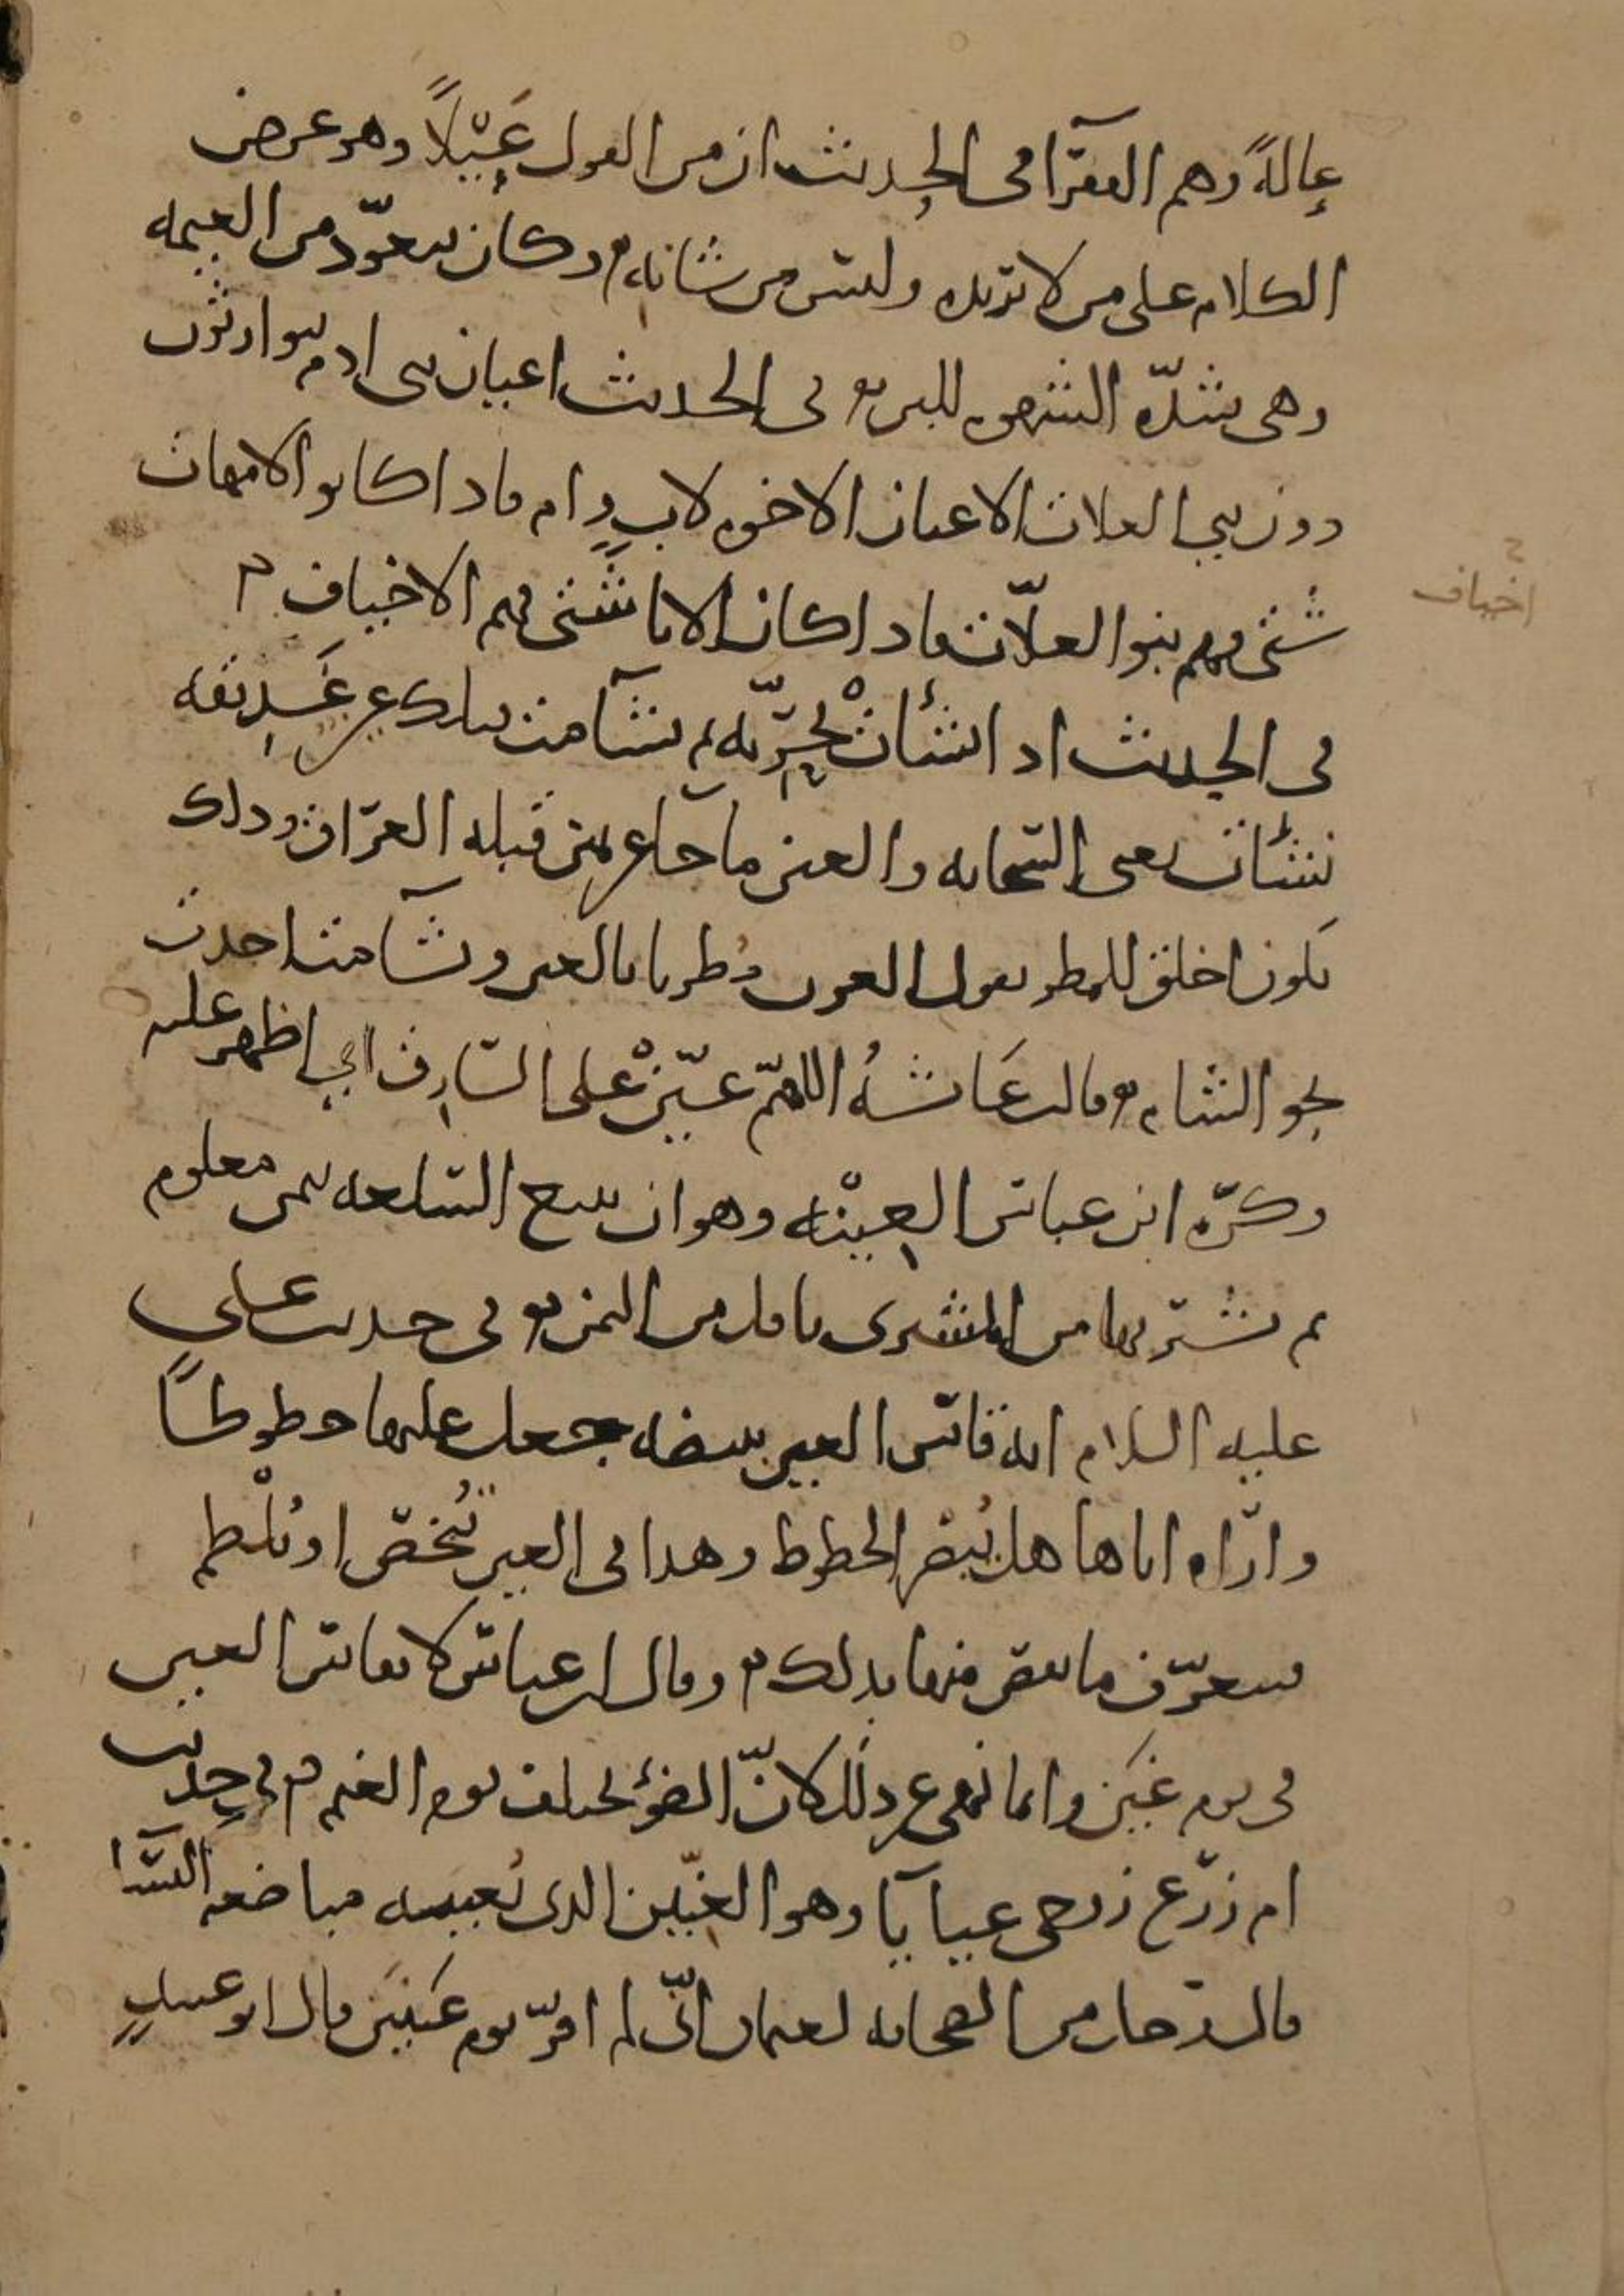 عالةً وهم الفقرآ في الحديث ان من القول عَيْلاً وهو عرض
الكلام على من لا تريده وليس من شانه وكان يتعوّد من العيمه
وهي شدّه الشهوه للبن في الحديث اعيان بني ادم يتوارثون
دون بني العلات الاعيان الاخوه لاب وام فاذا كانو الامهات
شتى فهم بنوا العلّات فاذا كان الابا شَتى فهم الاخياف
اخياف
في الحديث اذا نشأتْ بحريّه ثم تشآمت فتلك عين غَدِيقه
نشأت يعني السحابه والعين ما جآ عن يمين قبله العراق وذلك
يكون اخلق للمطر تقول العرب مُطرنا بالعين وتشآمت اخذت
نحو الشام وقالت عَائشهُ اللهمّ عيّنْ على السارق اي اظهر عليه
وكرّه ابن عباس العِيْنه وهو ان يبيع السلعه بثمن معلوم
ثم يشتريها من المشترى باقل من الثمن في حديث علي
عليه السلام انه قاس العين ببيضه جعل عليها خطوطاً
وارّاه اياها هل يُبصر الخطوط وهذا في العين تُبخص او تُلْطم
فيتعرّف ما نقص منها بذلك وقال ابن عباس لا تقاس العين
في يوم غَيْن وانما نهى عن ذلك لانّ الضوء يختلف يوم الغيم في حديث
ام زرع زوجي عيايآ وهو العِنّين الذى تُعييه مباضعه النسآ
قال رجل من الصحابه لعثمان انّي لم افرّ يوم عَيْنَيْن قال ابو عبيدٍ